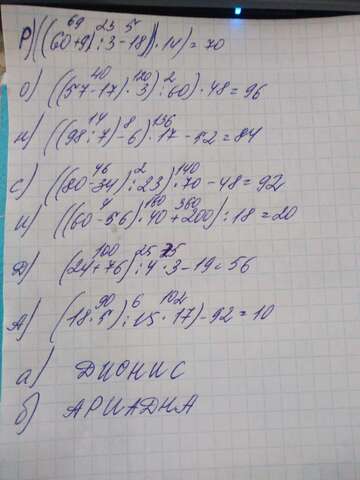 Р) (((60+9):3-18))·14)=70
69 23 5
О) ((57-17)·3):60)·48=96
40 120 2
Н) ((98:7)-6)·17-52=84
14 8 136
С) ((80-34):23)·70-48=92
46 2 140
И) ((60-56)·40+200):18=20
4 160 360
Д) (24+76):4·3-19=56
100 25 75
А) (18·5):15·17)-92=10
90 6 102
а) ДИОНИС
б) АРИАДНА